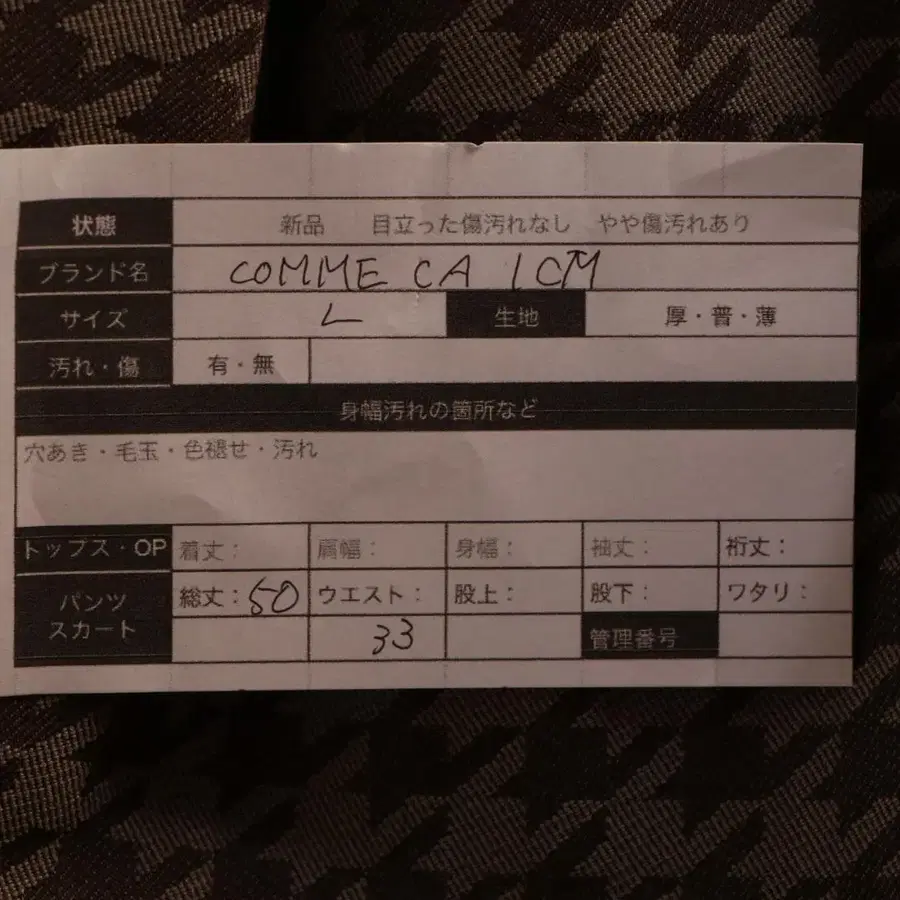 状態 新品 目立った傷汚れなし やや傷汚れあり
ブランド名 COMME CA ICM
サイズ L 生地 厚・普・薄
汚れ・傷 有・無
身幅汚れの箇所など
穴あき・毛玉・色褪せ・汚れ
トップス・OP 着丈： 肩幅： 身幅： 袖丈： 裄丈：
パンツ 総丈：50 ウエスト： 股上： 股下： ワタリ：
スカート 33 管理番号